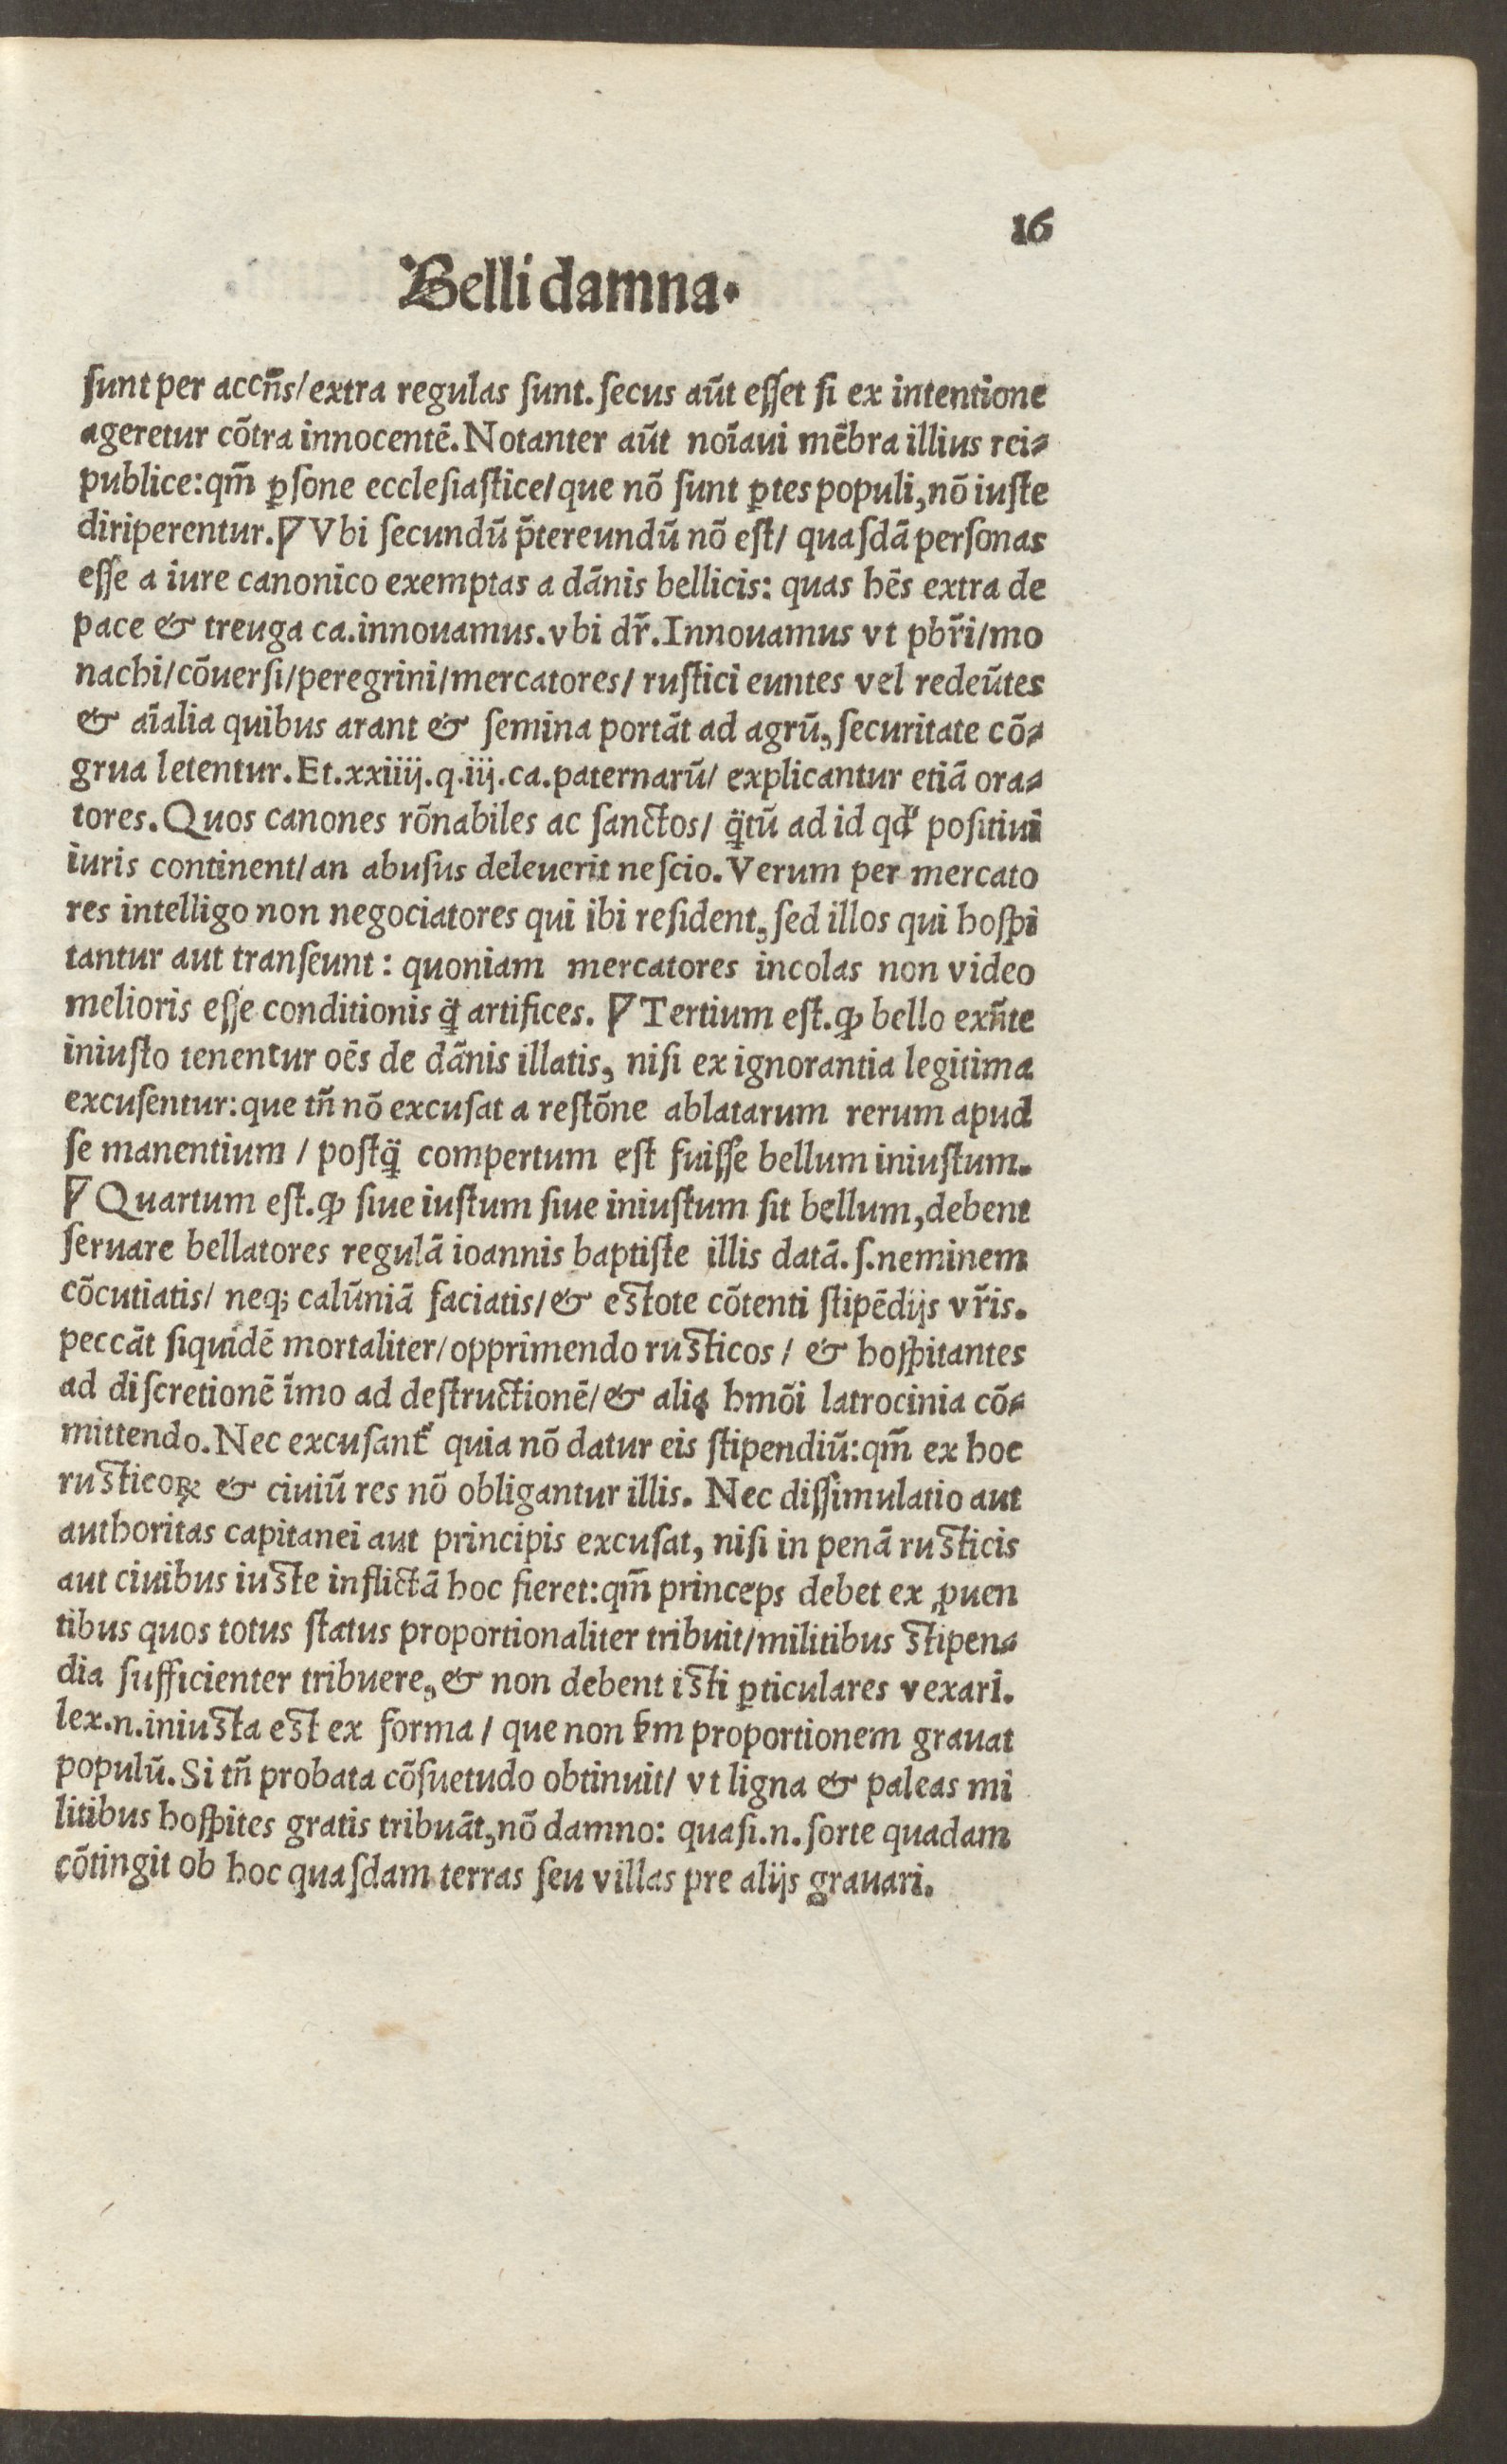 16
Belli damna.
sunt per accn̄s/extra regulas sunt. secus aūt esset si ex intentione
ageretur cōtra innocentē. Notanter aūt noīaui mēbra illius rei⸗
publice: qm̄ ꝑsone ecclesiastice/que nō sunt ꝑtes populi, nō iuste
diriperentur. ¶ Vbi secundū p̄tereundū nō est/ quasdā personas
esse a iure canonico exemptas a dānis bellicis: quas hēs extra de
pace & treuga ca. innouamus. vbi dr̄. Innouamus vt pbr̄i/mo
nachi/cōuersi/peregrini/mercatores/ rustici euntes vel redeūtes
& aīalia quibus arant & semina portāt ad agrū, securitate cō⸗
grua letentur. Et. xxiiij. q. iij. ca. paternarū/ explicantur etiā ora⸗
tores. Quos canones rōnabiles ac sanctos/ q̄tū ad id qd' positiui
iuris continent/an abusus deleuerit nescio. Verum per mercato
res intelligo non negociatores qui ibi resident, sed illos qui hospi
tantur aut transeunt: quoniam mercatores incolas non video
melioris esse conditionis q̄ artifices. ¶ Tertium est. ꝙ bello exn̄te
iniusto tenentur oēs de dānis illatis, nisi ex ignorantia legitima
excusentur: que tn̄ nō excusat a restōne ablatarum rerum apud
se manentium / postq̄ compertum est fuisse bellum iniustum.
¶ Quartum est. ꝙ siue iustum siue iniustum sit bellum, debent
seruare bellatores regulā ioannis baptiste illis datā. s. neminem
cōcutiatis/ neq; calūniā faciatis/& estote cōtenti stipēdijs vr̄is.
peccāt siquidē mortaliter/opprimendo rusticos / & hospitantes
ad discretionē īmo ad destructionē/& aliq hmōi latrocinia cō⸗
mittendo. Nec excusant' quia nō datur eis stipendiū: qm̄ ex hoc
rusticoꝝ & ciuiū res nō obligantur illis. Nec dissimulatio aut
authoritas capitanei aut principis excusat, nisi in penā rusticis
aut ciuibus iuste inflictā hoc fieret: qm̄ princeps debet ex ꝓuen
tibus quos totus status proportionaliter tribuit/militibus stipen⸗
dia sufficienter tribuere, & non debent isti ꝑticulares vexari.
lex. n. iniusta est ex forma / que non ẜm proportionem grauat
populū. Si tn̄ probata cōsuetudo obtinuit/ vt ligna & paleas mi
litibus hospites gratis tribuāt, nō damno: quasi. n. sorte quadam
cōtingit ob hoc quasdam terras seu villas pre alijs grauari.